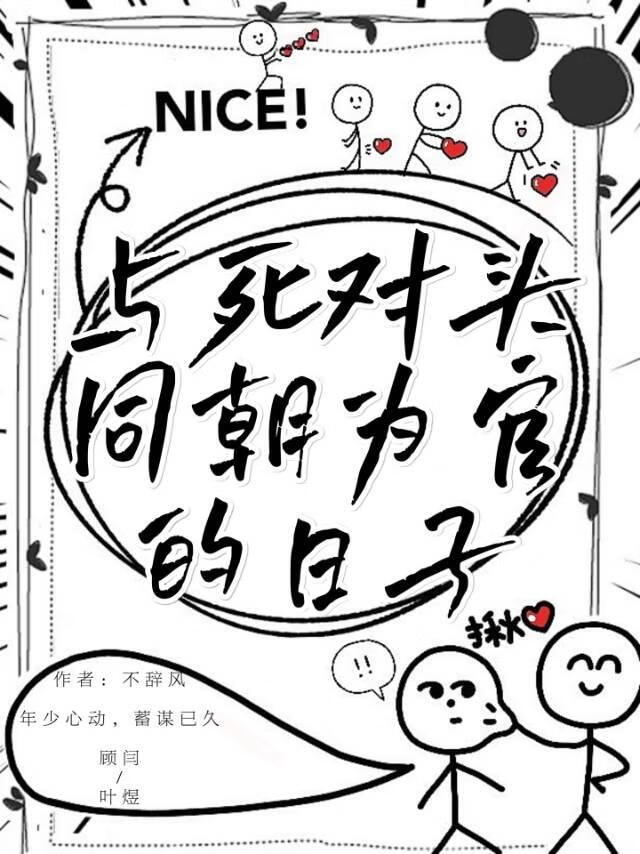 NICE!
与死对头
同朝为官
的日子
揪
!!
作者：不辞风
年少心动，蓄谋已久
顾闫
/
叶煜